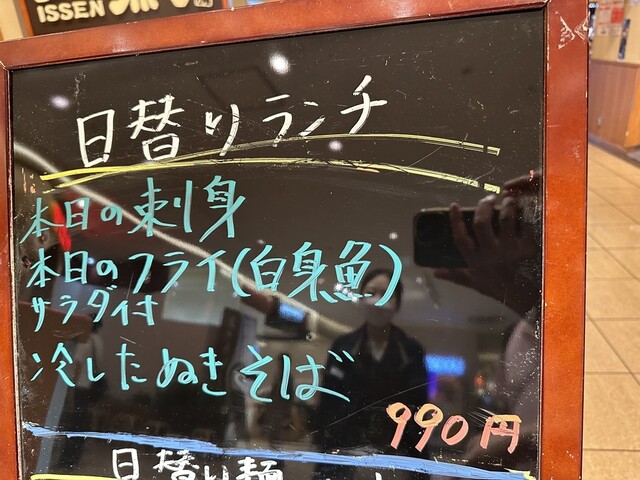 ISSEN
日替りランチ
本日の刺身
本日のフライ(白身魚)
サラダ付
冷したぬきそば
990円
日替り麺